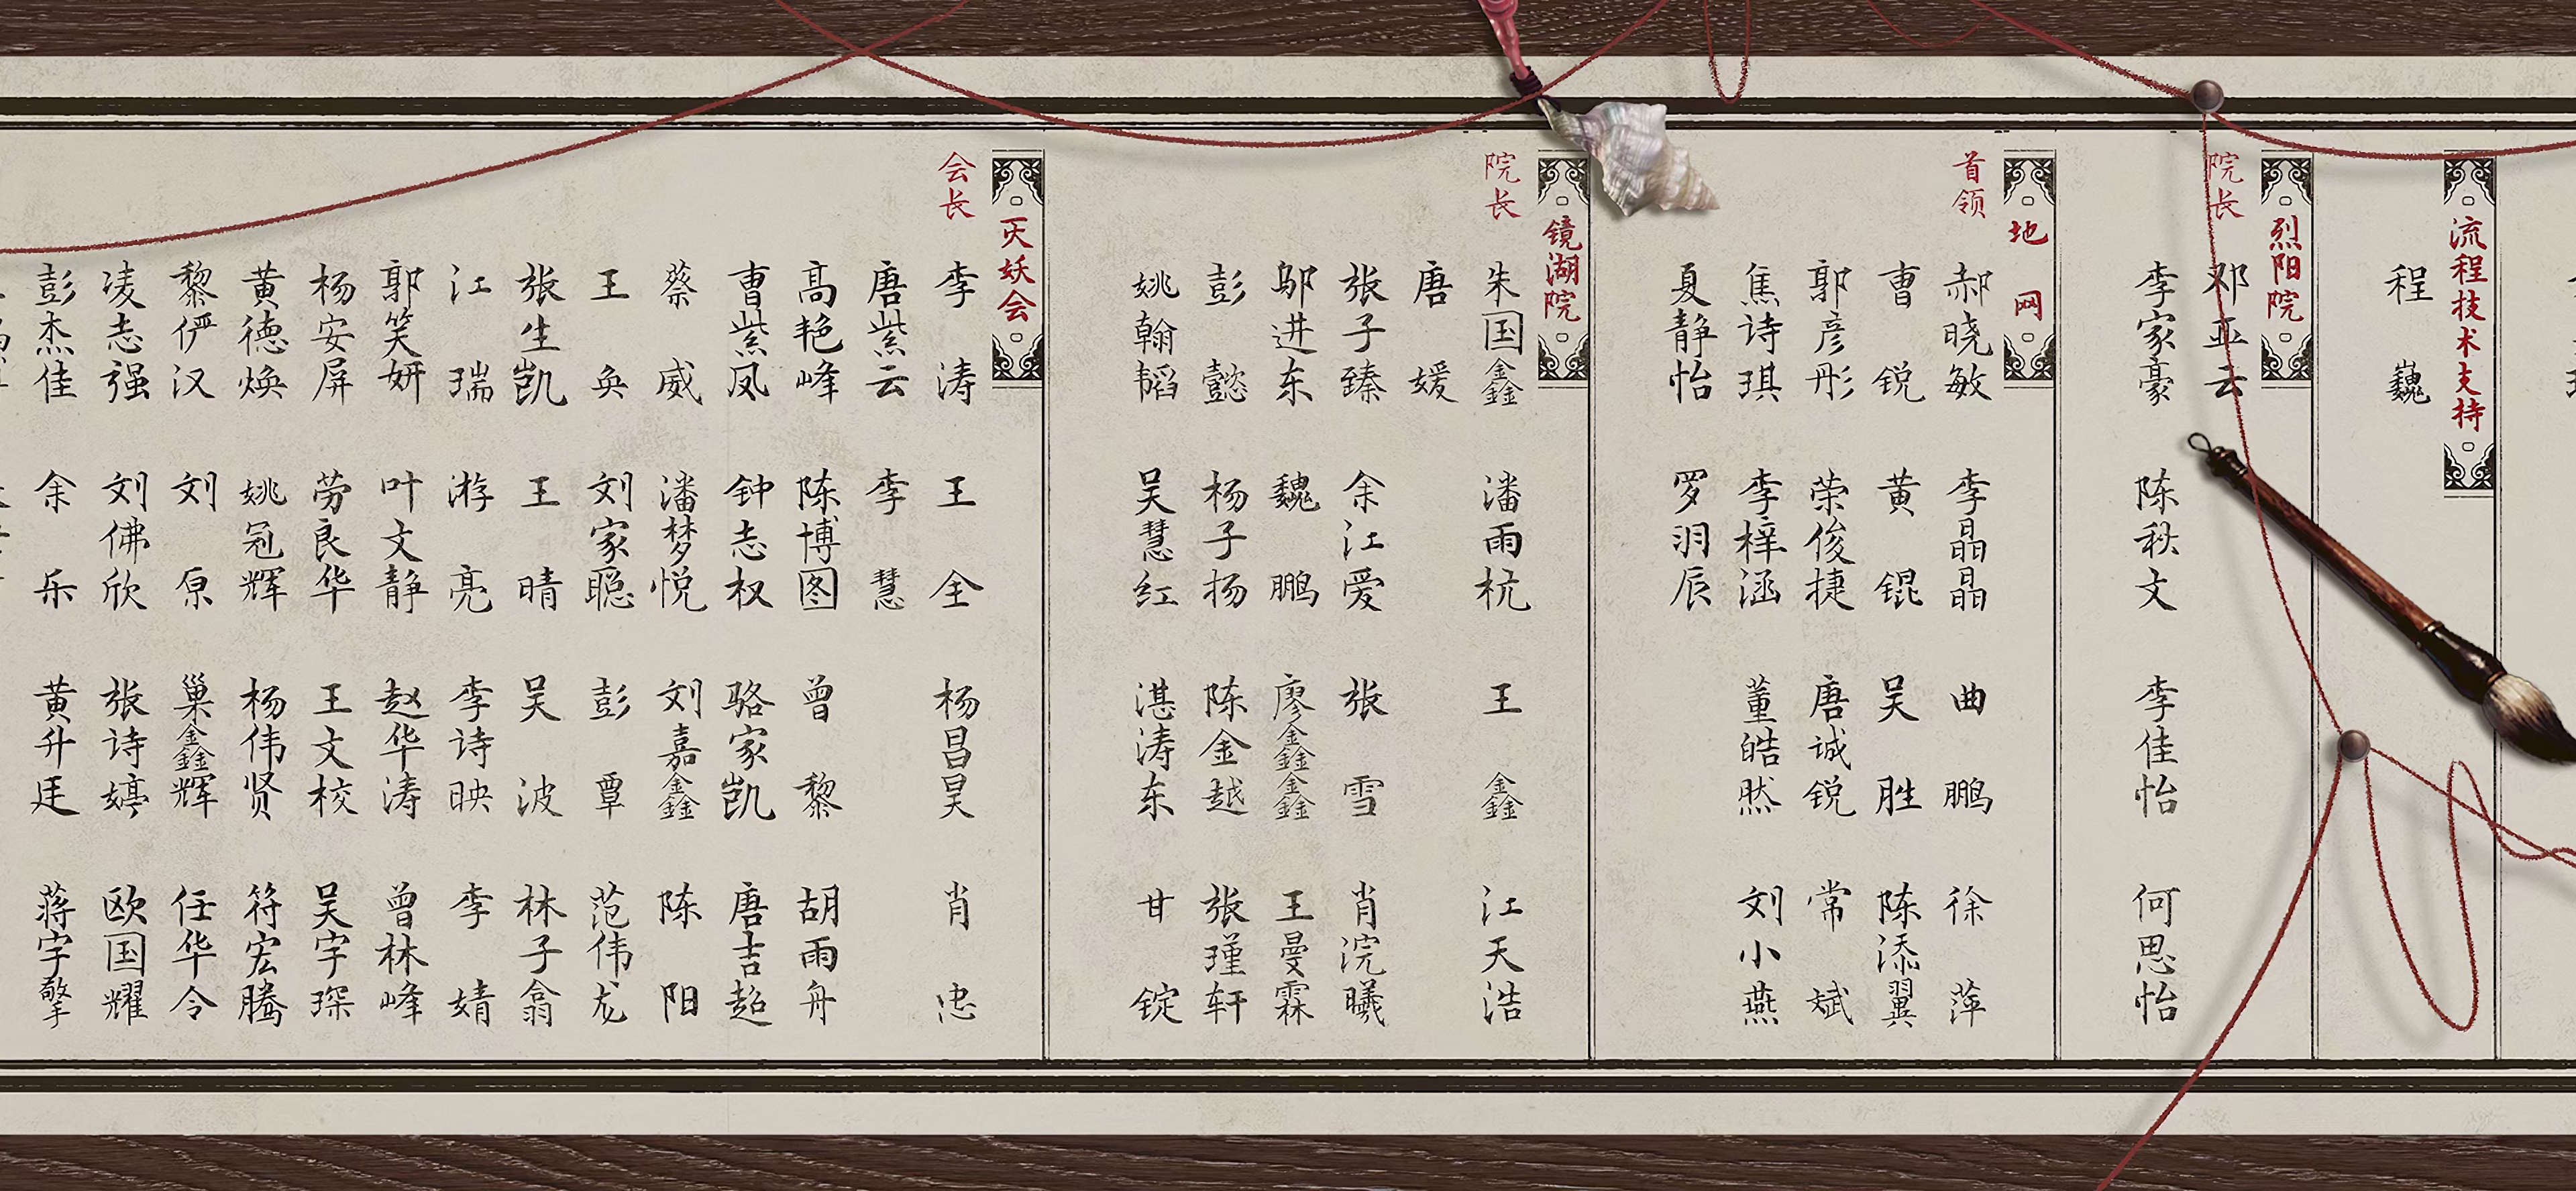 流程技术支持
程巍
烈阳院
院长 邓亚云
李家豪 陈秋文 李佳怡 何思怡
地网
首领 郝晓敏 李晶晶 曲鹏 徐萍
曹锐 黄锟 吴胜 陈添翼
郭彦彤 荣俊捷 唐诚锐 常斌
焦诗琪 李梓涵 董皓然 刘小燕
夏静怡 罗羽辰
镜湖院
院长 朱国鑫 潘雨杭 王鑫 江天浩
唐媛
张子臻 余江爱 张雪 肖浣曦
邬进东 魏鹏 廖鑫鑫 王曼霖
彭懿 杨子扬 陈金越 张瑾轩
姚翰韬 吴慧红 湛涛东 甘锭
天妖会
会长 李涛 王全 杨昌昊 肖忠
唐紫云 李慧
高艳峰 陈博图 曾黎 胡雨舟
曹紫凤 钟志权 骆家凯 唐吉超
蔡威 潘梦悦 刘嘉鑫 陈阳
王奂 刘家聪 彭覃 范伟龙
张生凯 王晴 吴波 林子翕
江瑞 游亮 李诗映 李婧
郭笑妍 叶文静 赵华涛 曾林峰
杨安屏 劳良华 王文校 吴宇琛
黄德焕 姚冠辉 杨伟贤 符宏腾
黎俨汉 刘原 巢鑫辉 任华令
凌志强 刘佛欣 张诗婷 欧国耀
彭杰佳 余乐 黄升廷 蒋宇擎